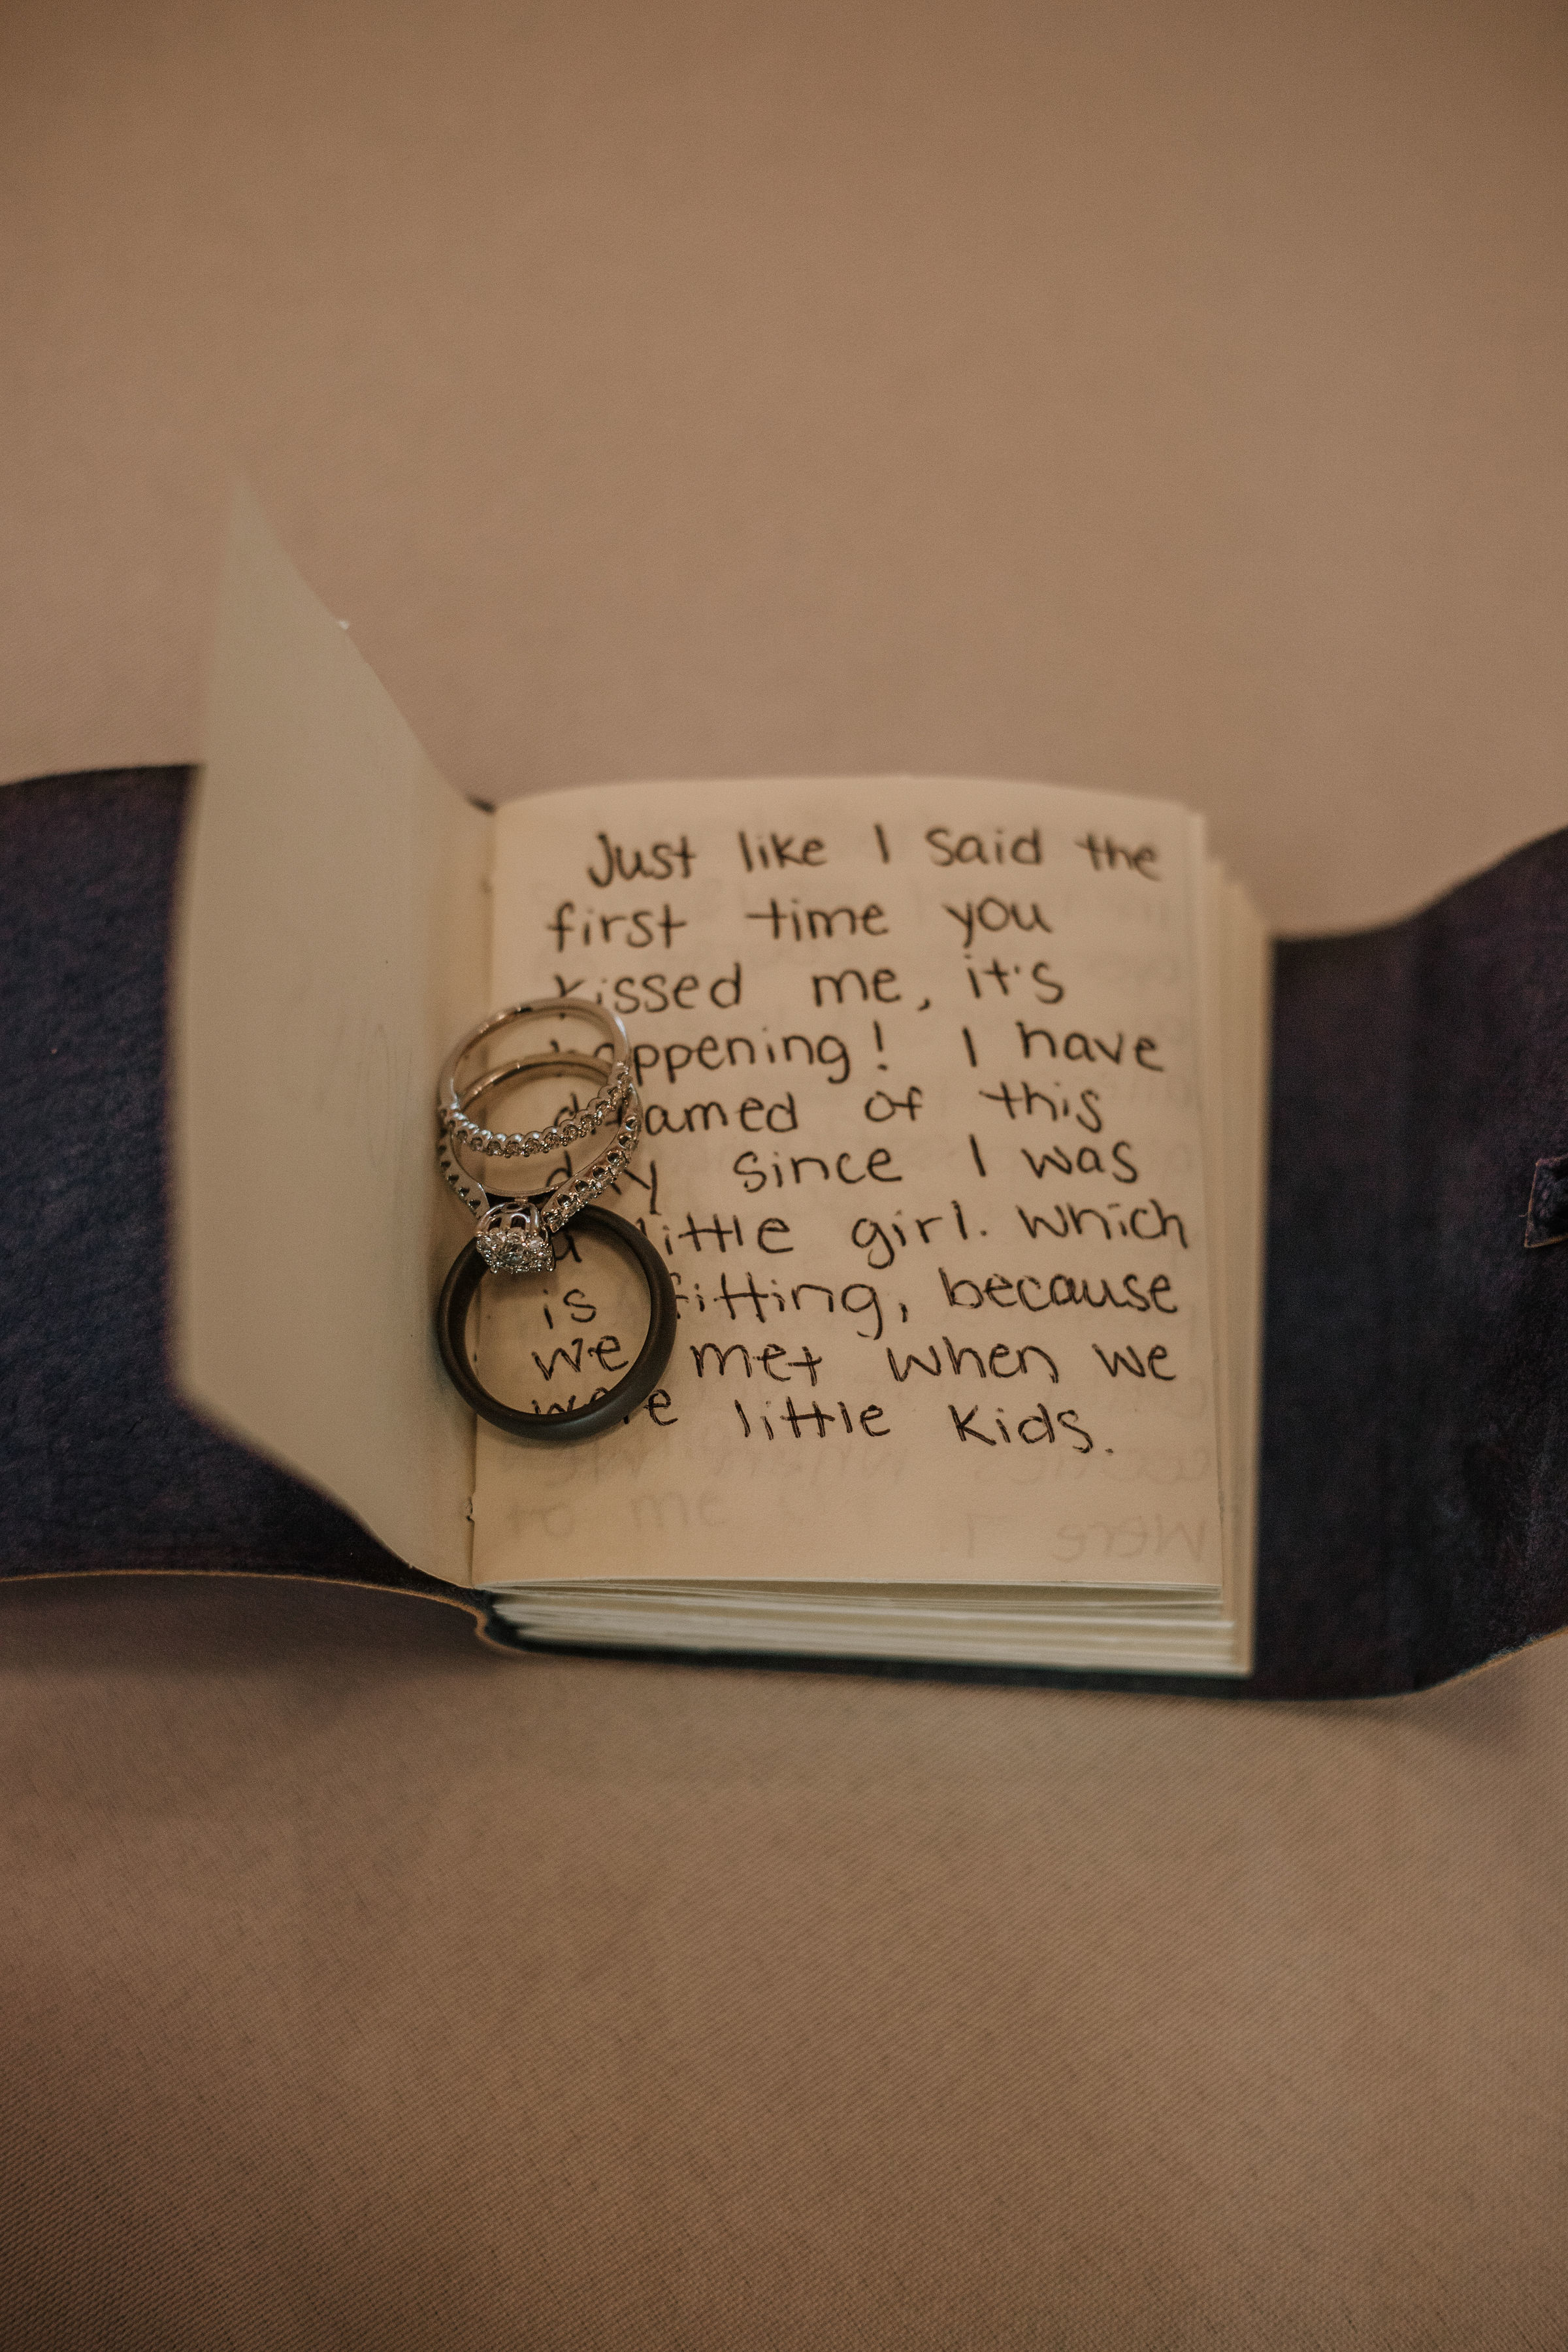 Just like I said the
first time you
kissed me, it's
happening! I have
dreamed of this
day since I was
a little girl. Which
is fitting, because
we met when we
were little kids.